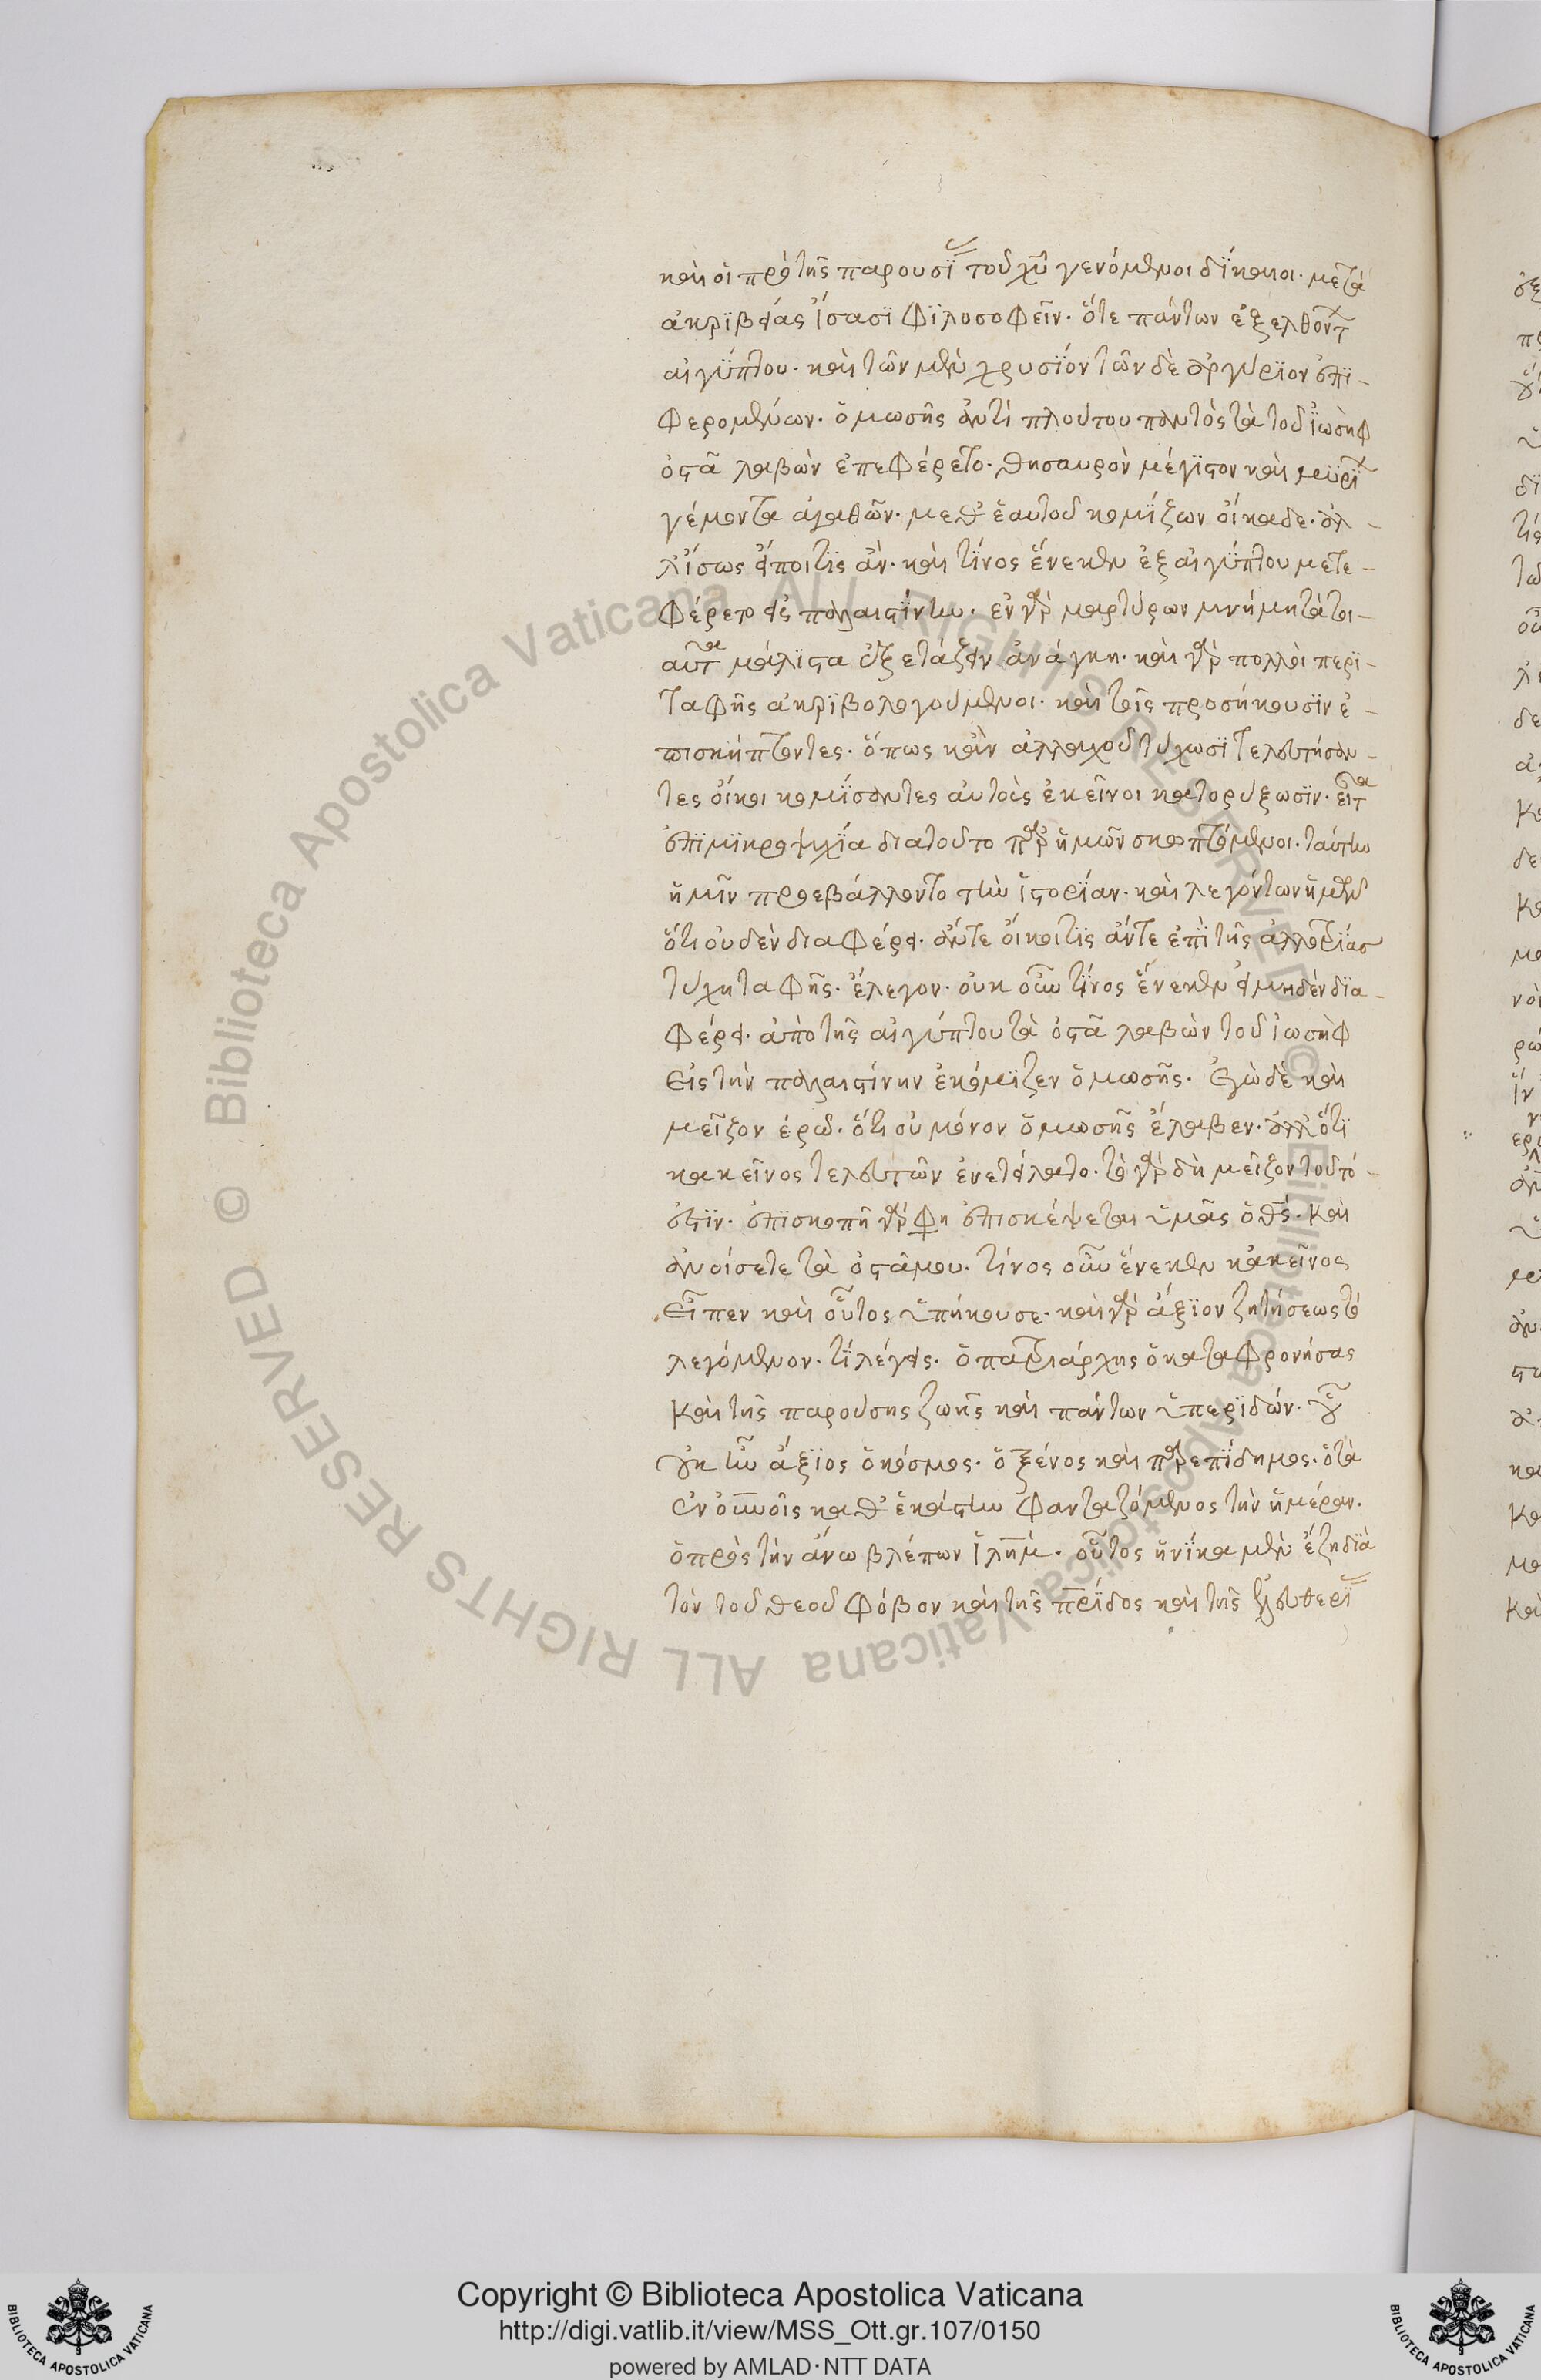 καὶ οἱ πρὸ τῆς παρουσί τοῦ χῦ γενόμενοι δίκαιοι· μετὰ
ἀκριβείας ἴσασι φιλοσοφεῖν· ὅτε πάντων ἐξελθόντ
αἰγύπτου· καὶ τῶν μὲν χρυσίον τῶν δὲ ἀργύριον ἐπι-
φερομένων· ὁ μωσῆς ἀντὶ πλούτου παντὸς τὰ τοῦ ἰωσὴφ
ὀστᾶ λαβὼν ἐπεφέρετο· θησαυρὸν μέγιστον καὶ μυρί
γέμοντα ἀγαθῶν· μεθ' ἑαυτοῦ κομίζων οἴκαδε· ἀλ-
λ' ἴσως εἴποι τὶς ἄν· καὶ τίνος ἕνεκεν ἐξ αἰγύπτου μετε-
φέρετο εἰς παλαιστίνην· ἐν γὰρ μαρτύρων μνήμη τὰ τοι-
αῦτα μάλιστα ἐξετάζειν ἀνάγκη· καὶ γὰρ πολλοὶ περὶ
ταφῆς ἀκριβολογούμενοι· καὶ τοῖς προσήκουσιν ἐ-
πισκήπτοντες· ὅπως κἂν ἀλλαχοῦ τύχωσι τελευτήσαν-
τες οἴκοι κομίσαντες αὐτοὺς ἐκεῖνοι κατορύξωσιν· εἶτα
ἐπὶ μικροψυχία διατοῦτο παρ' ἡμῶν σκοπτόμενοι· ταύτην
ἡμῖν προεβάλλοντο τὴν ἱστορίαν· καὶ λεγόντων ἡμῶν
ὅτι οὐδὲν διαφέρει· ἄντε οἴκοι τὶς ἄντε ἐπὶ τῆς ἀλλοτρίας
τύχη ταφῆς· ἔλεγον· οὐκ οὖν τίνος ἕνεκεν εἰ μηδὲν δια-
φέρει· ἀπὸ τῆς αἰγύπτου τὰ ὀστᾶ λαβὼν τοῦ ἰωσὴφ
Εἰς τὴν παλαιστίνην ἐκόμιζεν ὁ μωσῆς· Ἐγὼ δὲ καὶ
μεῖζον ἐρῶ· ὅτι οὐ μόνον ὁ μωσῆς ἔλαβεν· ἀλλ' ὅτι
κακεῖνος τελευτῶν ἐνετείλατο· τὸ γὰρ δὴ μεῖζον τοῦτό
ἐστιν· ἐπισκοπῆ γάρ φη ἐπισκέψεται ὑμᾶς ὁ θς· Καὶ
ἀνοίσετε τὰ ὀστᾶ μου· τίνος οὖν ἕνεκεν κἀκεῖνος
Εἶπεν καὶ οὗτος ὑπήκουσε· καὶ γὰρ ἄξιον ζητήσεως τὸ
λεγόμενον· τί λέγεις· ὁ πατριάρχης ὁ καταφρονήσας
Καὶ τῆς παρούσης ζωῆς καὶ πάντων ὑπεριδών· οὗ
οὐκ ἦν ἄξιος ὁ κόσμος· ὁ ξένος καὶ παρεπίδημος· ὁ τὰ
ἐν οὐνοῖς καθ' ἑκάστην φανταζόμενος τὴν ἡμέραν·
ὁ πρὸς τὴν ἄνω βλέπων ἱλημ· οὗτος ἡνίκα μὲν ἔζη διὰ
τὸν τοῦ θεοῦ φόβον καὶ τῆς πρίδος καὶ τῆς ἐλευθερί
Copyright © Biblioteca Apostolica Vaticana
http://digi.vatlib.it/view/MSS_Ott.gr.107/0150
powered by AMLAD·NTT DATA